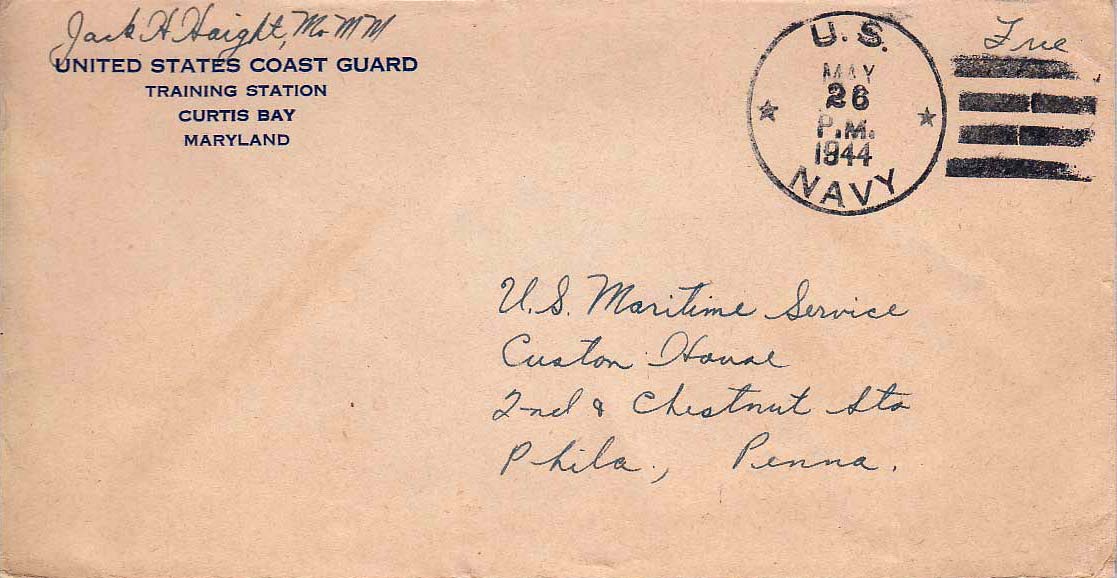 Jack H Haight, MoMM
UNITED STATES COAST GUARD
TRAINING STATION
CURTIS BAY
MARYLAND
U.S.
MAY
26
P.M.
1944
NAVY
Free
U.S. Maritime Service
Custom House
2nd & Chestnut Sts
Phila., Penna.